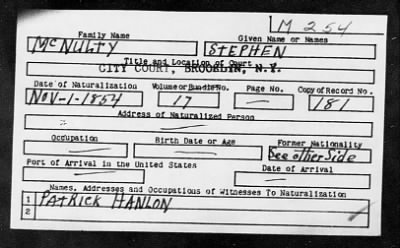 M 254
Family Name Given Name or Names
McNULTY STEPHEN
Title and Location of Court
CITY COURT, BROOKLYN, N.Y.
Date of Naturalization Volume or Bundle No. Page No. Copy of Record No.
NOV-1-1854 17 — 181
Address of Naturalized Person
—
Occupation Birth Date or Age Former Nationality
— — See other Side
Port of Arrival in the United States Date of Arrival
— —
Names, Addresses and Occupations of Witnesses To Naturalization
1 PATRICK HANLON
2